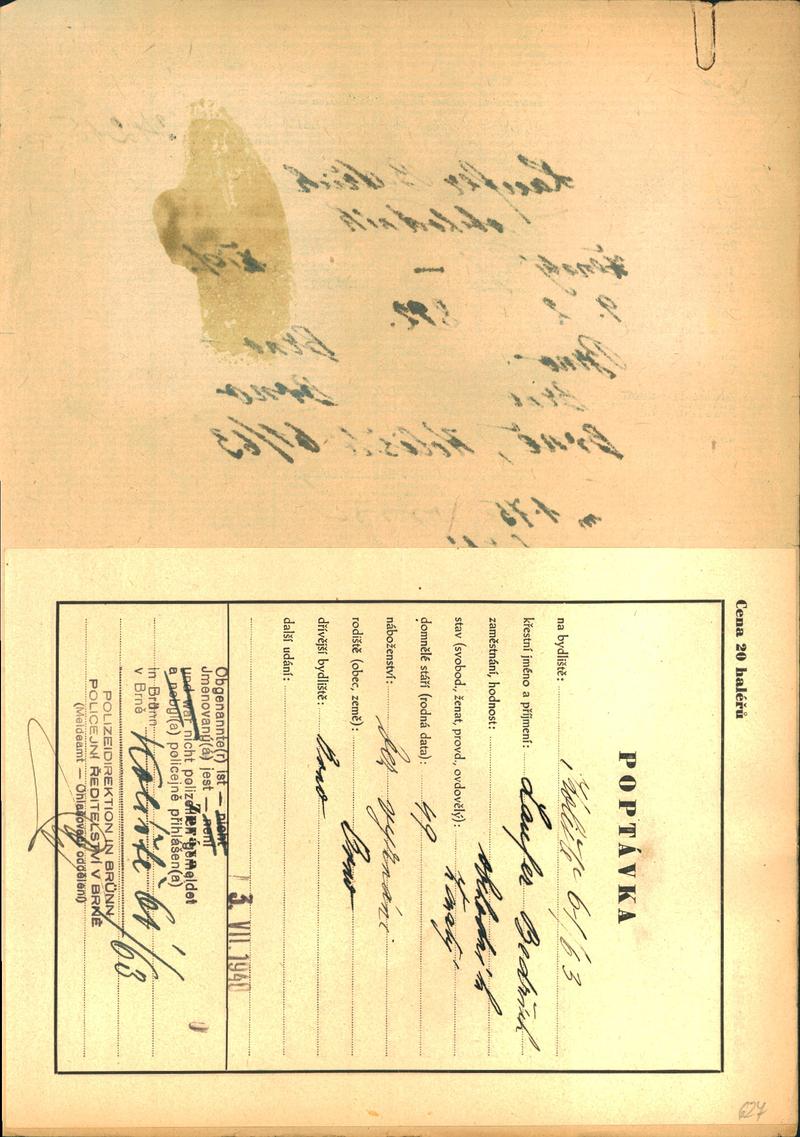 Cena 20 haléřů
POPTÁVKA
na bydliště: Koliště 61/63
křestní jméno a příjmení: Laufer Bedřich
zaměstnání, hodnost: obchodník
stav (svobod., ženat, provd., ovdovělý): ženatý
domnělé stáří (rodná data): 49
náboženství: bez vyznání
rodiště (obec, země): Brno
dřívější bydliště: Brno
další udání:
3. VII. 1940
Obgenannte(r) ist — nicht
Jmenovaný(á) jest — není
und war nicht polizeilich gemeldet
a nebyl(a) policejně přihlášen(a)
in Brünn
v Brně Koliště 61/63
POLIZEIDIREKTION IN BRÜNN
POLICEJNÍ ŘEDITELSTVÍ V BRNĚ
(Meldeamt — Ohlašovací oddělení)
627